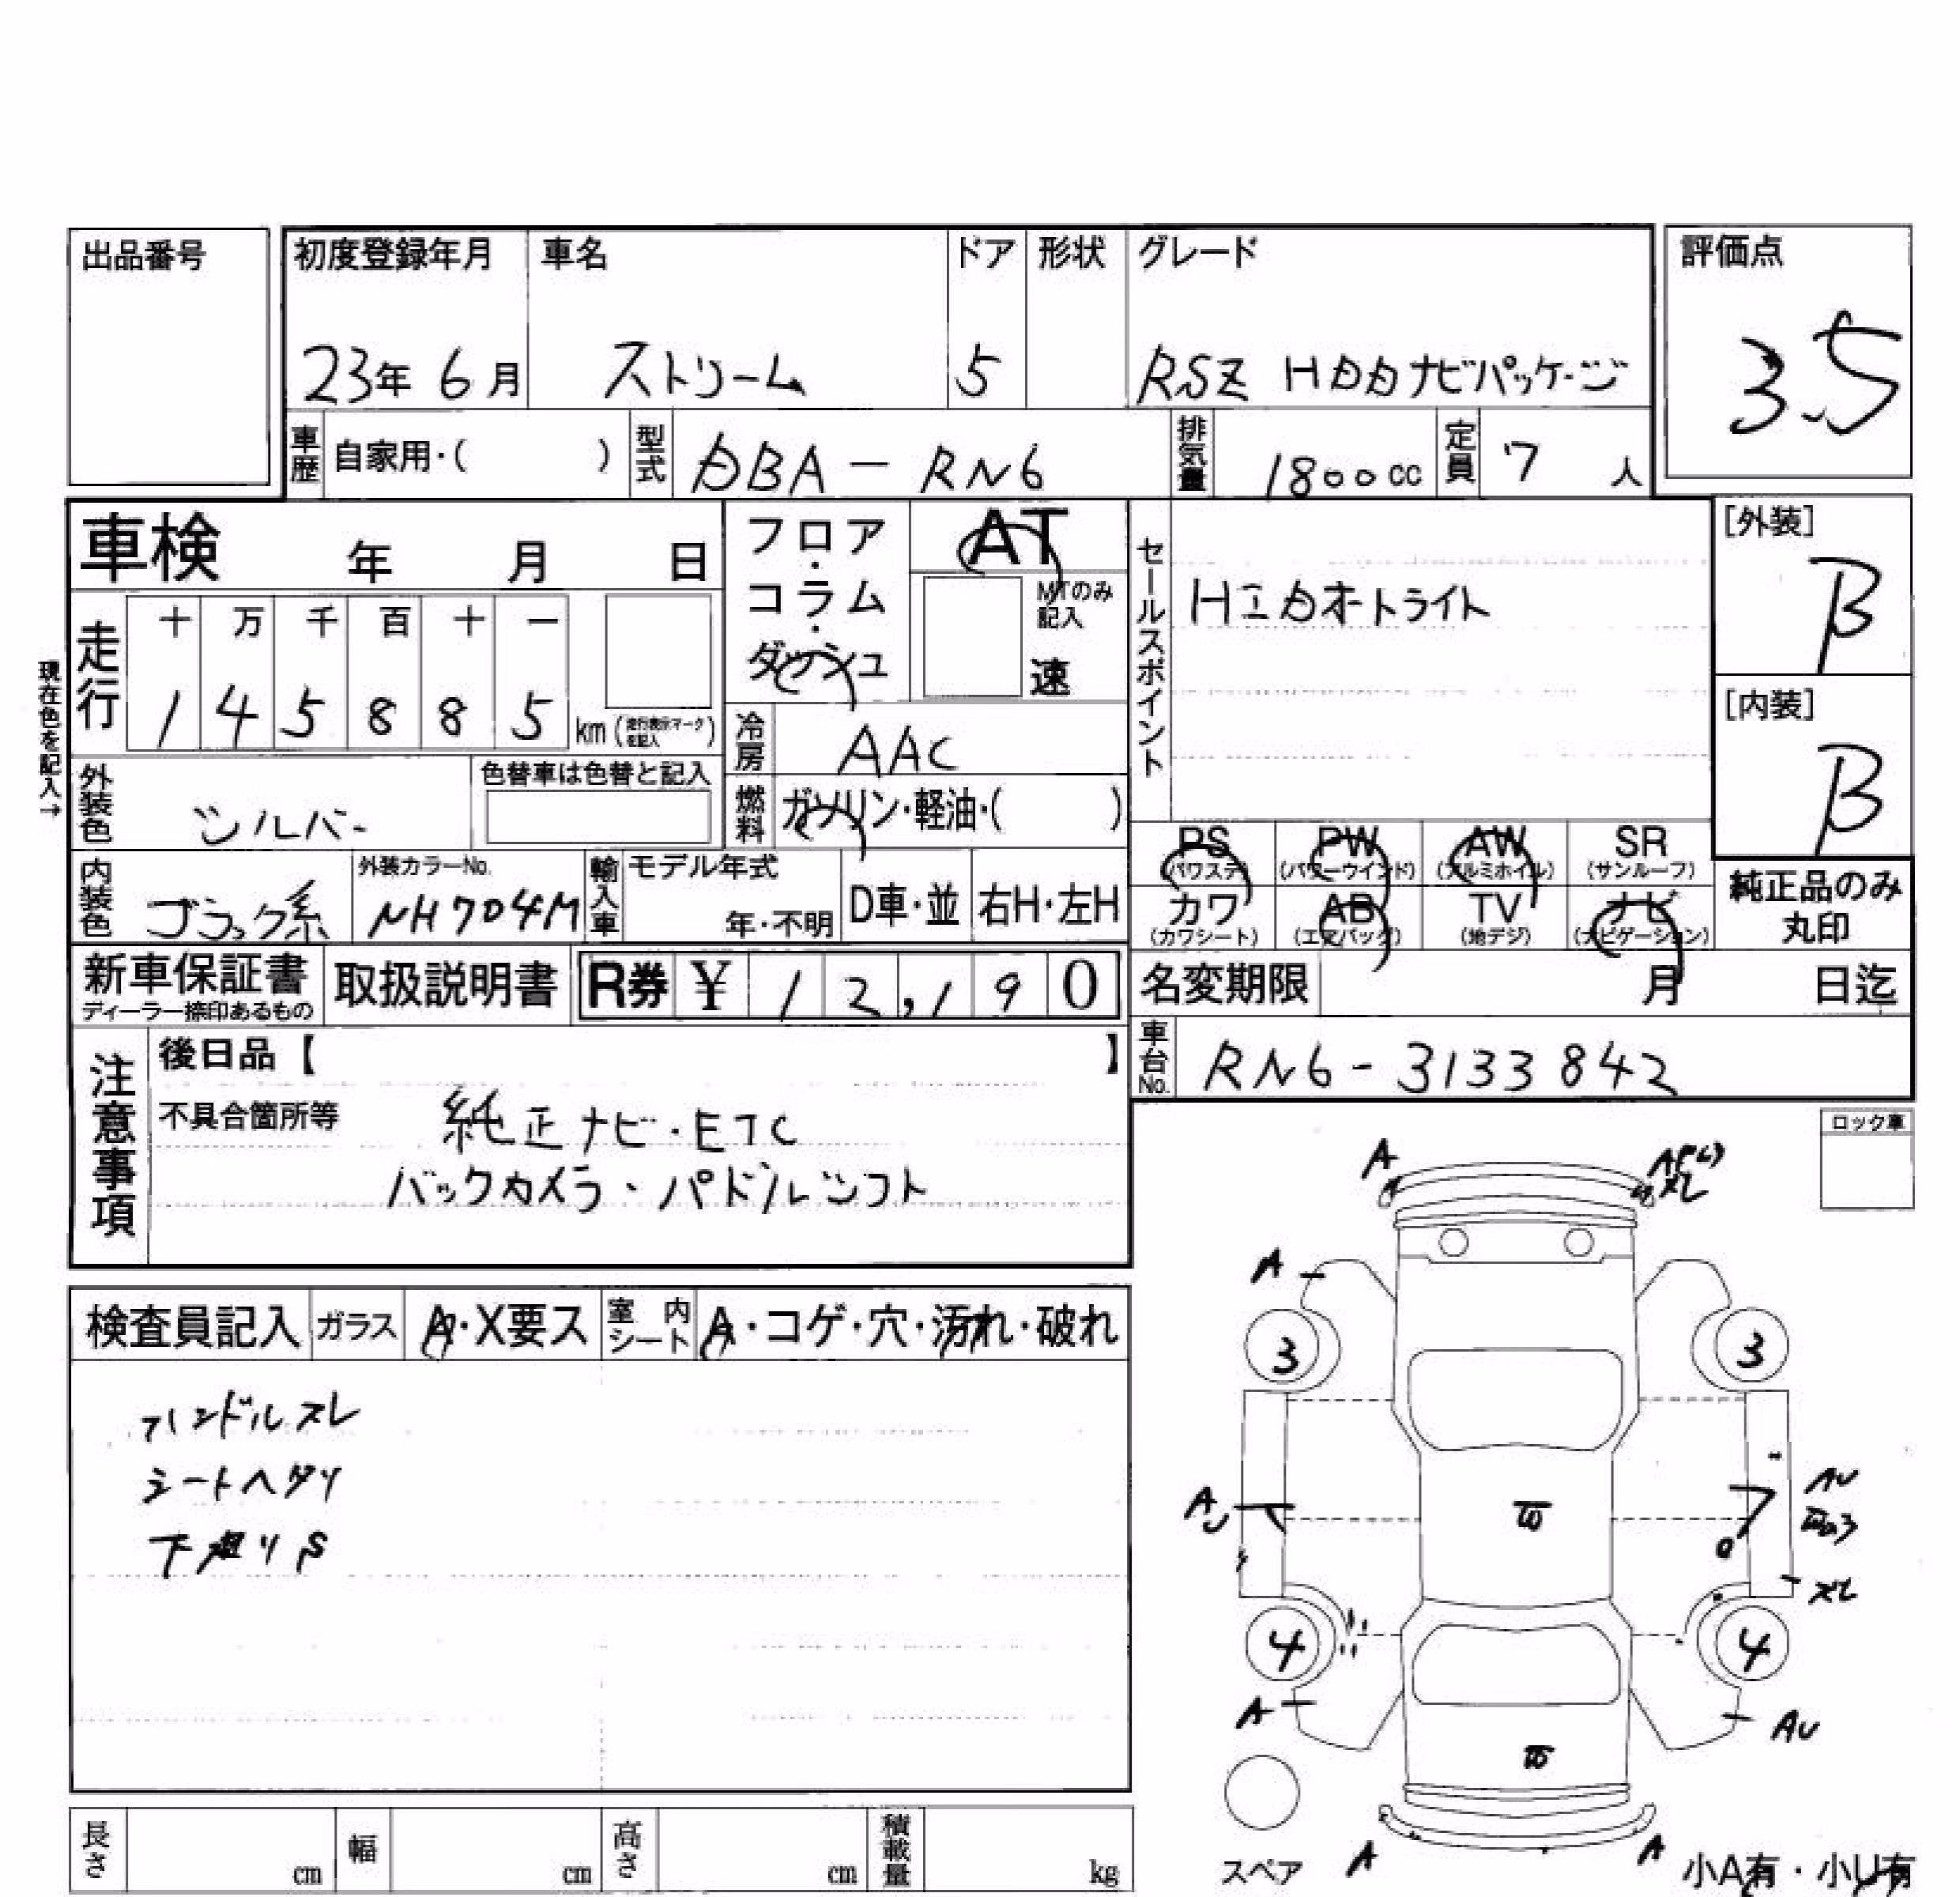 出品番号
初度登録年月 車名 ドア 形状 グレード 評価点
23年 6月 ストリーム 5 RSZ HDDナビパッケージ 3.5
車歴 自家用・( ) 型式 DBA-RN6 排気量 1800cc 定員 7人
車検 年 月 日
フロア・コラム・ダッシュ
AT
MTのみ記入
速
セールスポイント
HIDオートライト
[外装]
B
[内装]
B
現在色を記入→
走行 十 万 千 百 十 一
1 4 5 8 8 5 km (走行表示マークを記入)
冷房 AAC
外装色 シルバー
色替車は色替と記入
燃料 ガソリン・軽油・( )
PS (パワステ) PW (パワーウインド) AW (アルミホイル) SR (サンルーフ)
カワ (カワシート) AB (エアバッグ) TV (地デジ) ナビ (ナビゲーション)
純正品のみ
丸印
内装色 ブラック系 外装カラーNo. NH704M 輸入車 モデル年式 年・不明 D車・並 右H・左H
新車保証書 ディーラー捺印あるもの 取扱説明書 R券 ¥ 12,190
名変期限 月 日迄
車台No. RN6-3133842
注意事項
後日品【 】
不具合箇所等 純正ナビ・ETC
バックカメラ・パドルシフト
ロック車
検査員記入 ガラス A・X要ス 室内シート A・コゲ・穴・汚れ・破れ
ハンドルスレ
シートヘタリ
下廻りS
A
A
3 3
AU
AU
スレ
4 4
A
AU
A
A
スペア
小A有・小U有
長さ cm 幅 cm 高さ cm 積載量 kg